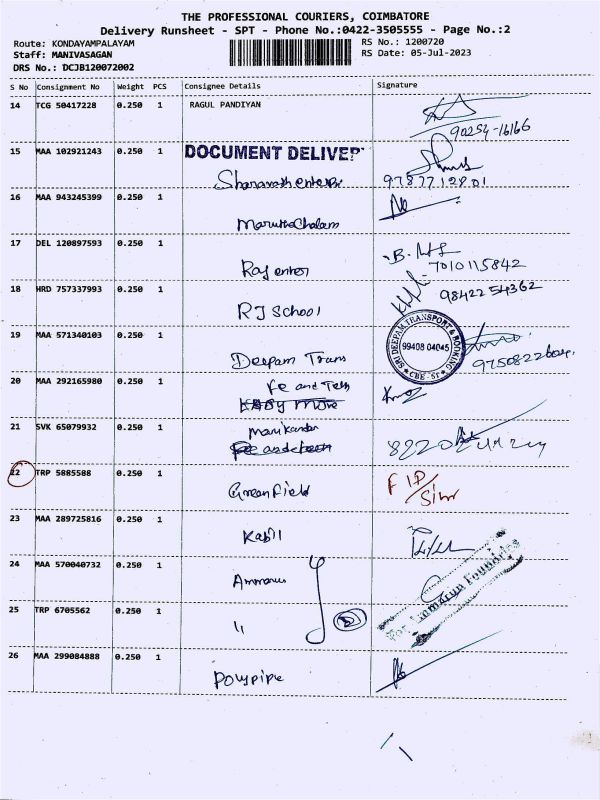 THE PROFESSIONAL COURIERS, COIMBATORE
Delivery Runsheet - SPT - Phone No.:0422-3505555 - Page No.:2
Route: KONDAYAMPALAYAM RS No.: 1200720
Staff: MANIVASAGAN RS Date: 05-Jul-2023
DRS No.: DCJB120072002
S No Consignment No Weight PCS Consignee Details Signature
14 TCG 50417228 0.250 1 RAGUL PANDIYAN
90254-16166
15 MAA 102921243 0.250 1 DOCUMENT DELIVER
9787712801
16 MAA 943245399 0.250 1
17 DEL 120897593 0.250 1
Raj enter 7010115842
18 HRD 757337993 0.250 1 9842254362
RJ School
19 MAA 571340103 0.250 1 SRI DEEPAM TRANSPORT & BOOKING
99408 04045
CBE
Deepam Trans
20 MAA 292165980 0.250 1
Fe and Tech
21 SVK 65079932 0.250 1
Manikandan
22 TRP 5885588 0.250 1
Green Field
23 MAA 289725816 0.250 1
Kabil
24 MAA 570040732 0.250 1
Foundries
25 TRP 6705562 0.250 1
"
26 MAA 299084888 0.250 1
Polypipe